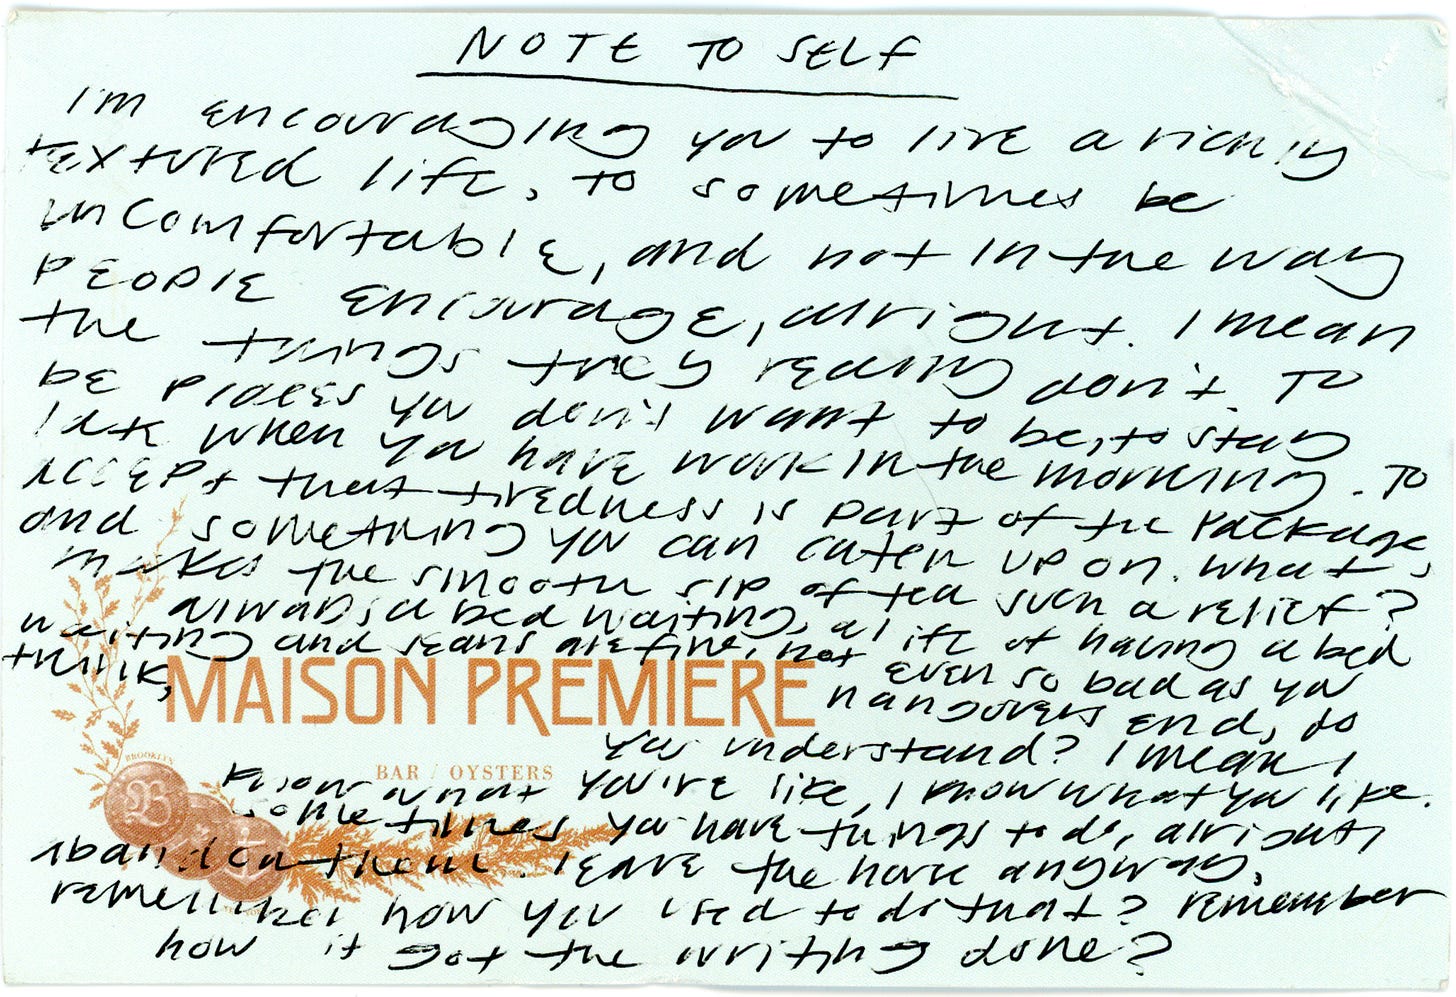 NOTE TO SELF
I'm encouraging you to live a richly
textured life, to sometimes be
uncomfortable, and not in the way
people encourage, alright. I mean
the things they really don't. To
be places you don't want to be, to stay
late when you have work in the morning. To
accept that tiredness is part of the package,
and something you can catch up on. What
makes the smooth sip of tea such a relief?
always a bed waiting, a life of having a bed
waiting and are fine, not even so bad as you
think,
MAISON PREMIERE
hangovers end, do
you understand? I mean I
BROOKLYN
BAR / OYSTERS
know what you're like, I know what you like.
sometimes you have things to do, alright
abandon them. leave the house anyway.
remember how you used to do that? Remember
how it got the writing done?